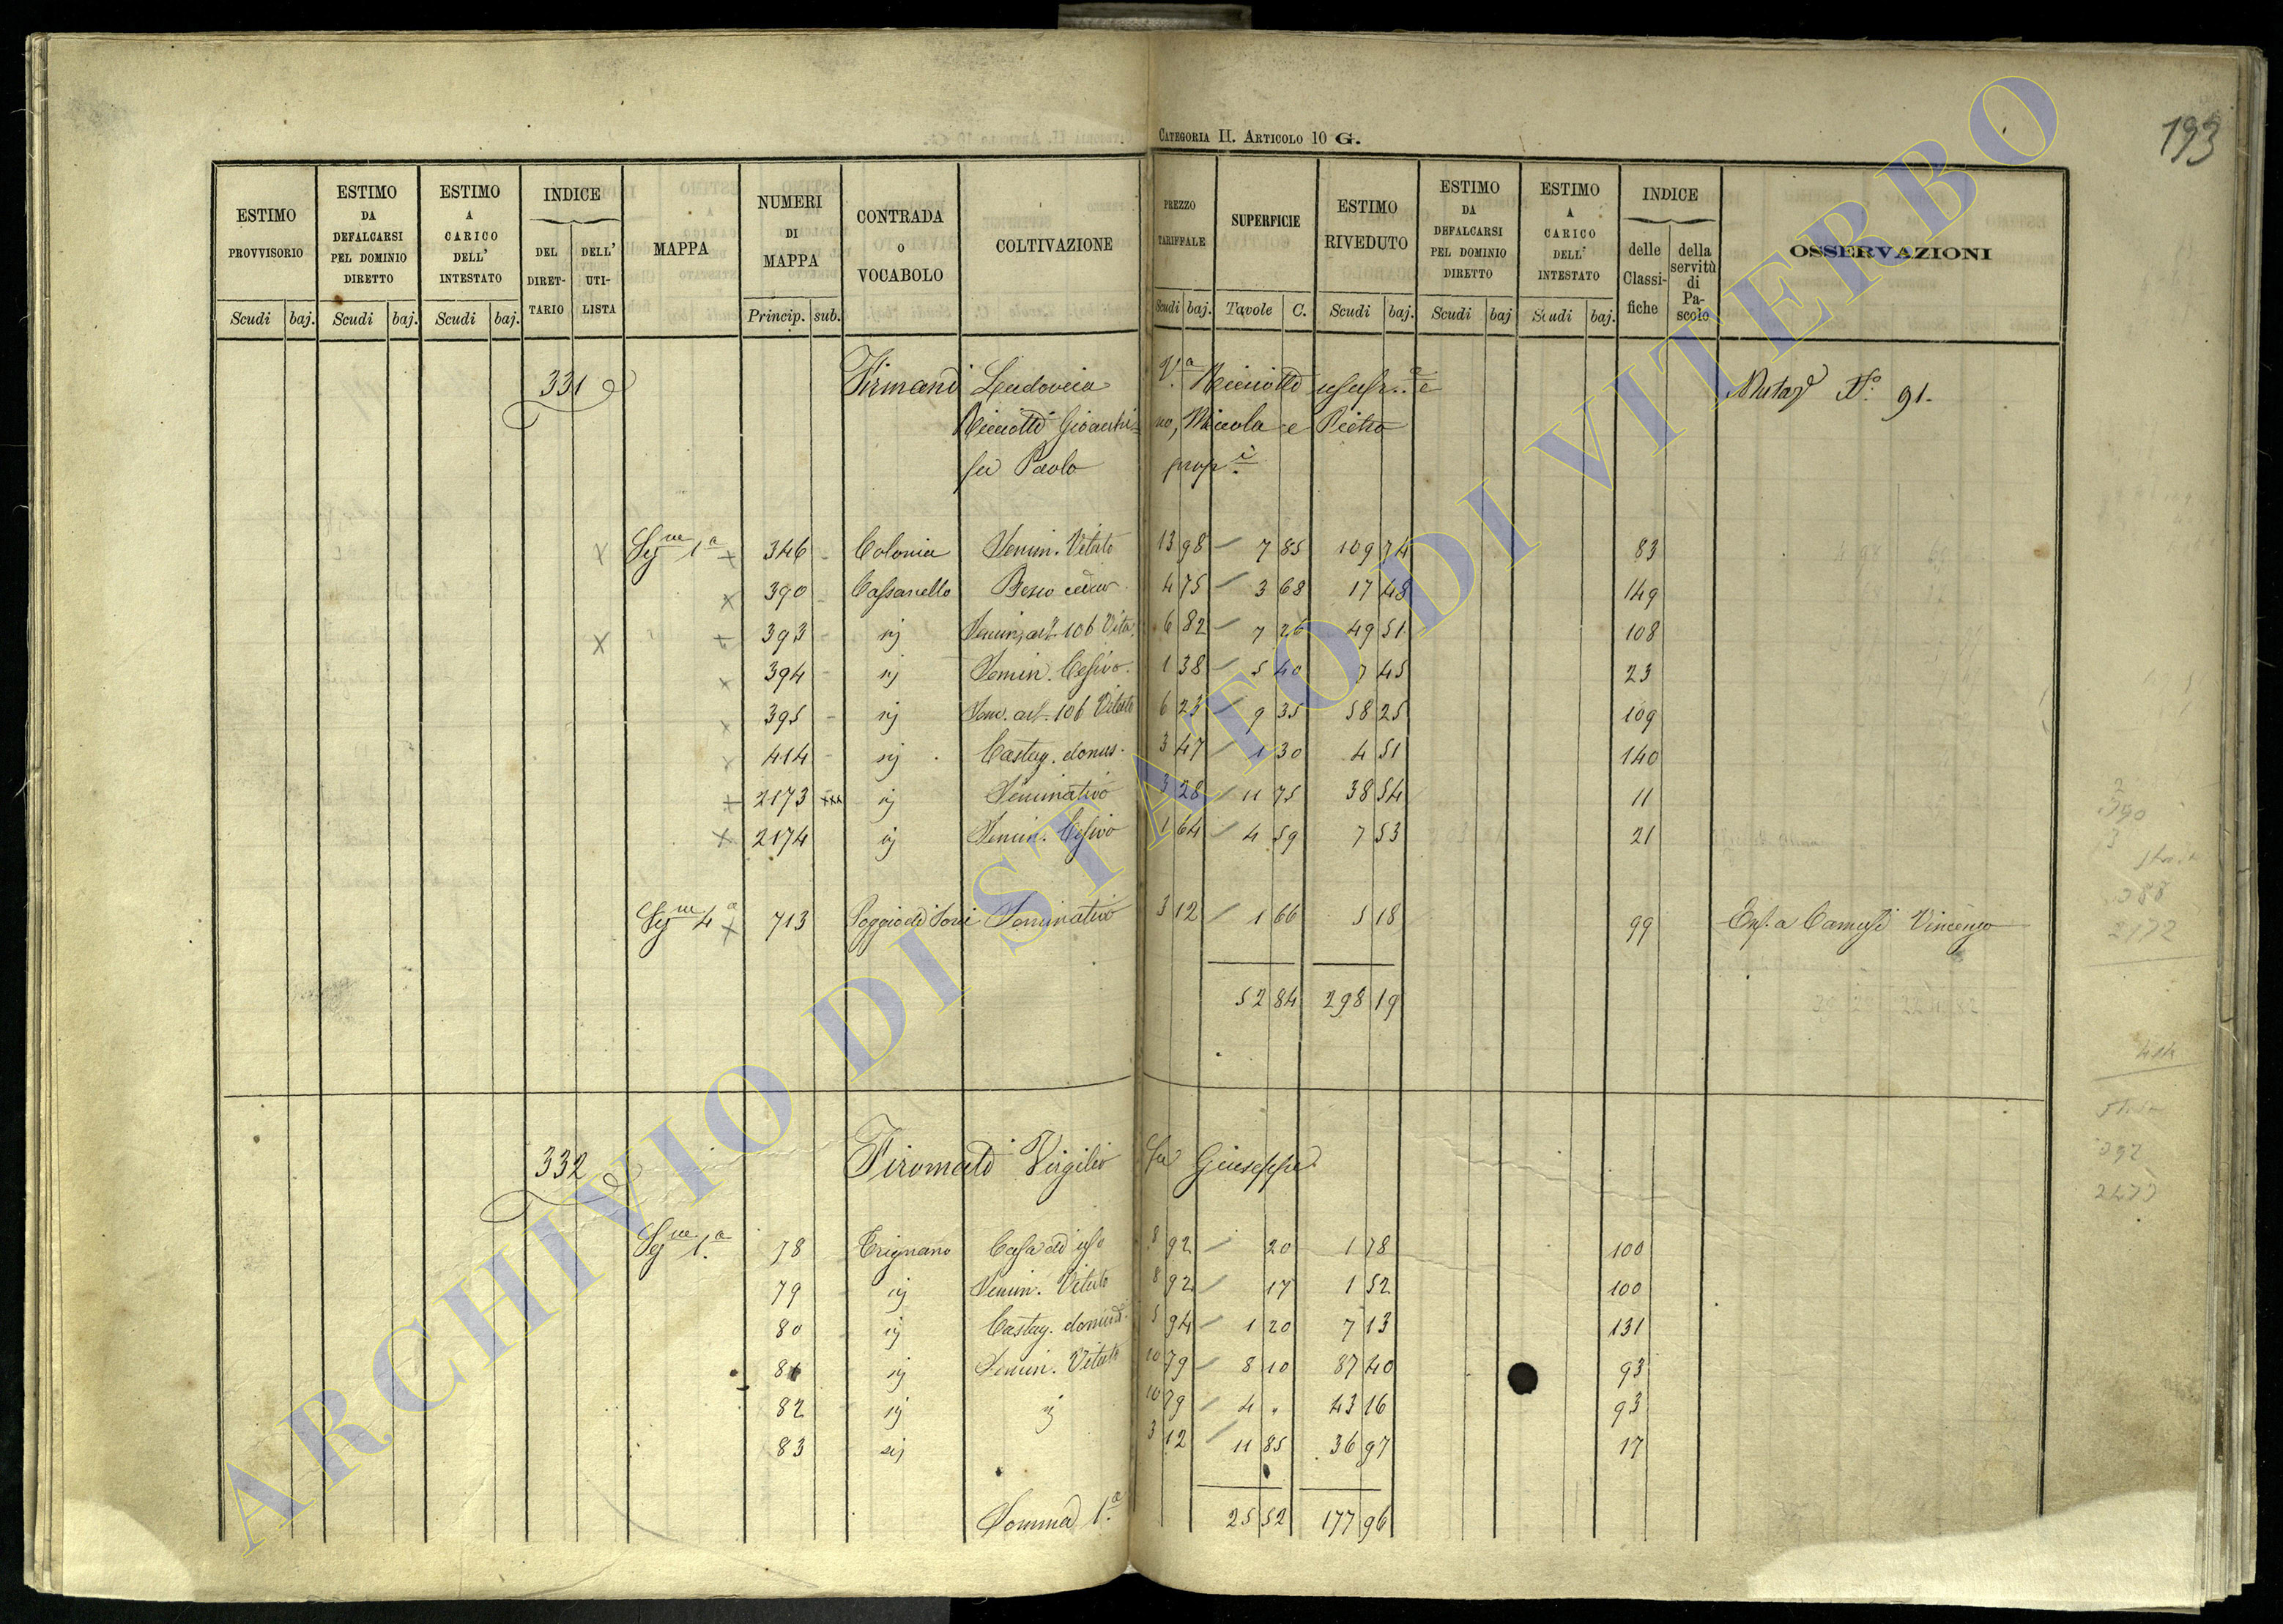 193
CATEGORIA II. ARTICOLO 10 G.
ESTIMO PROVVISORIO
ESTIMO DA DEFALCARSI PEL DOMINIO DIRETTO
ESTIMO A CARICO DELL' INTESTATO
INDICE
DEL DIRET-TARIO
DELL' UTI-LISTA
MAPPA
NUMERI DI MAPPA
CONTRADA O VOCABOLO
COLTIVAZIONE
PREZZO TARIFFALE
SUPERFICIE
ESTIMO RIVEDUTO
ESTIMO DA DEFALCARSI PEL DOMINIO DIRETTO
ESTIMO A CARICO DELL' INTESTATO
INDICE
delle Classi-fiche
della servitù di Pa-scolo
OSSERVAZIONI
Scudi baj. Scudi baj. Scudi baj. Princip. sub. Scudi baj. Tavole C. Scudi baj. Scudi baj Scudi baj.
331 Firmani Ludovica Va Ricciotti usufr.a e Nº 91.
Ricciotti Gioacchi= no, Nicola e Pietro
fu Paolo prop.i
X Segne 1a + 346 Colonia Semin. Vitato 13 98 7 85 109 74 83
x 390 Cassanello Bosco ceduo 4 75 3 68 17 48 149
X + 393 ij Semin. art. 106 Vita. 6 82 7 26 49 51 108
x 394 ij Semin. Cesivo. 1 38 5 40 7 45 23
x 395 ij Sem. art. 106 Vitato 6 23 9 35 58 25 109
x 414 ij Castag. domes. 3 47 1 30 4 51 140
+ 2173 xxx ij Seminativo 3 28 11 75 38 54 11
x 2174 ij Semin. Cesivo 1 64 4 59 7 53 21
Segne 4a x 713 Poggio di Seminativo 3 12 1 66 5 18 99 Enf. a Camusi Vincenzo
52 84 298 19
332 Firomali Virgilio fu Giuseppe
Segne 1.a 78 Trignano Casa ad uso 8 92 20 1 78 100
79 ij Semin. Vitato 8 92 17 1 52 100
80 ij Castag. domest. 5 94 1 20 7 13 131
81 ij Semin. Vitato 10 79 8 10 87 40 93
82 ij ij 10 79 4 " 43 16 93
83 ij 3 12 11 85 36 97 17
Somma 1.a 25 52 177 96
390
3
388
2172
414
392
ARCHIVIO DI STATO DI VITERBO